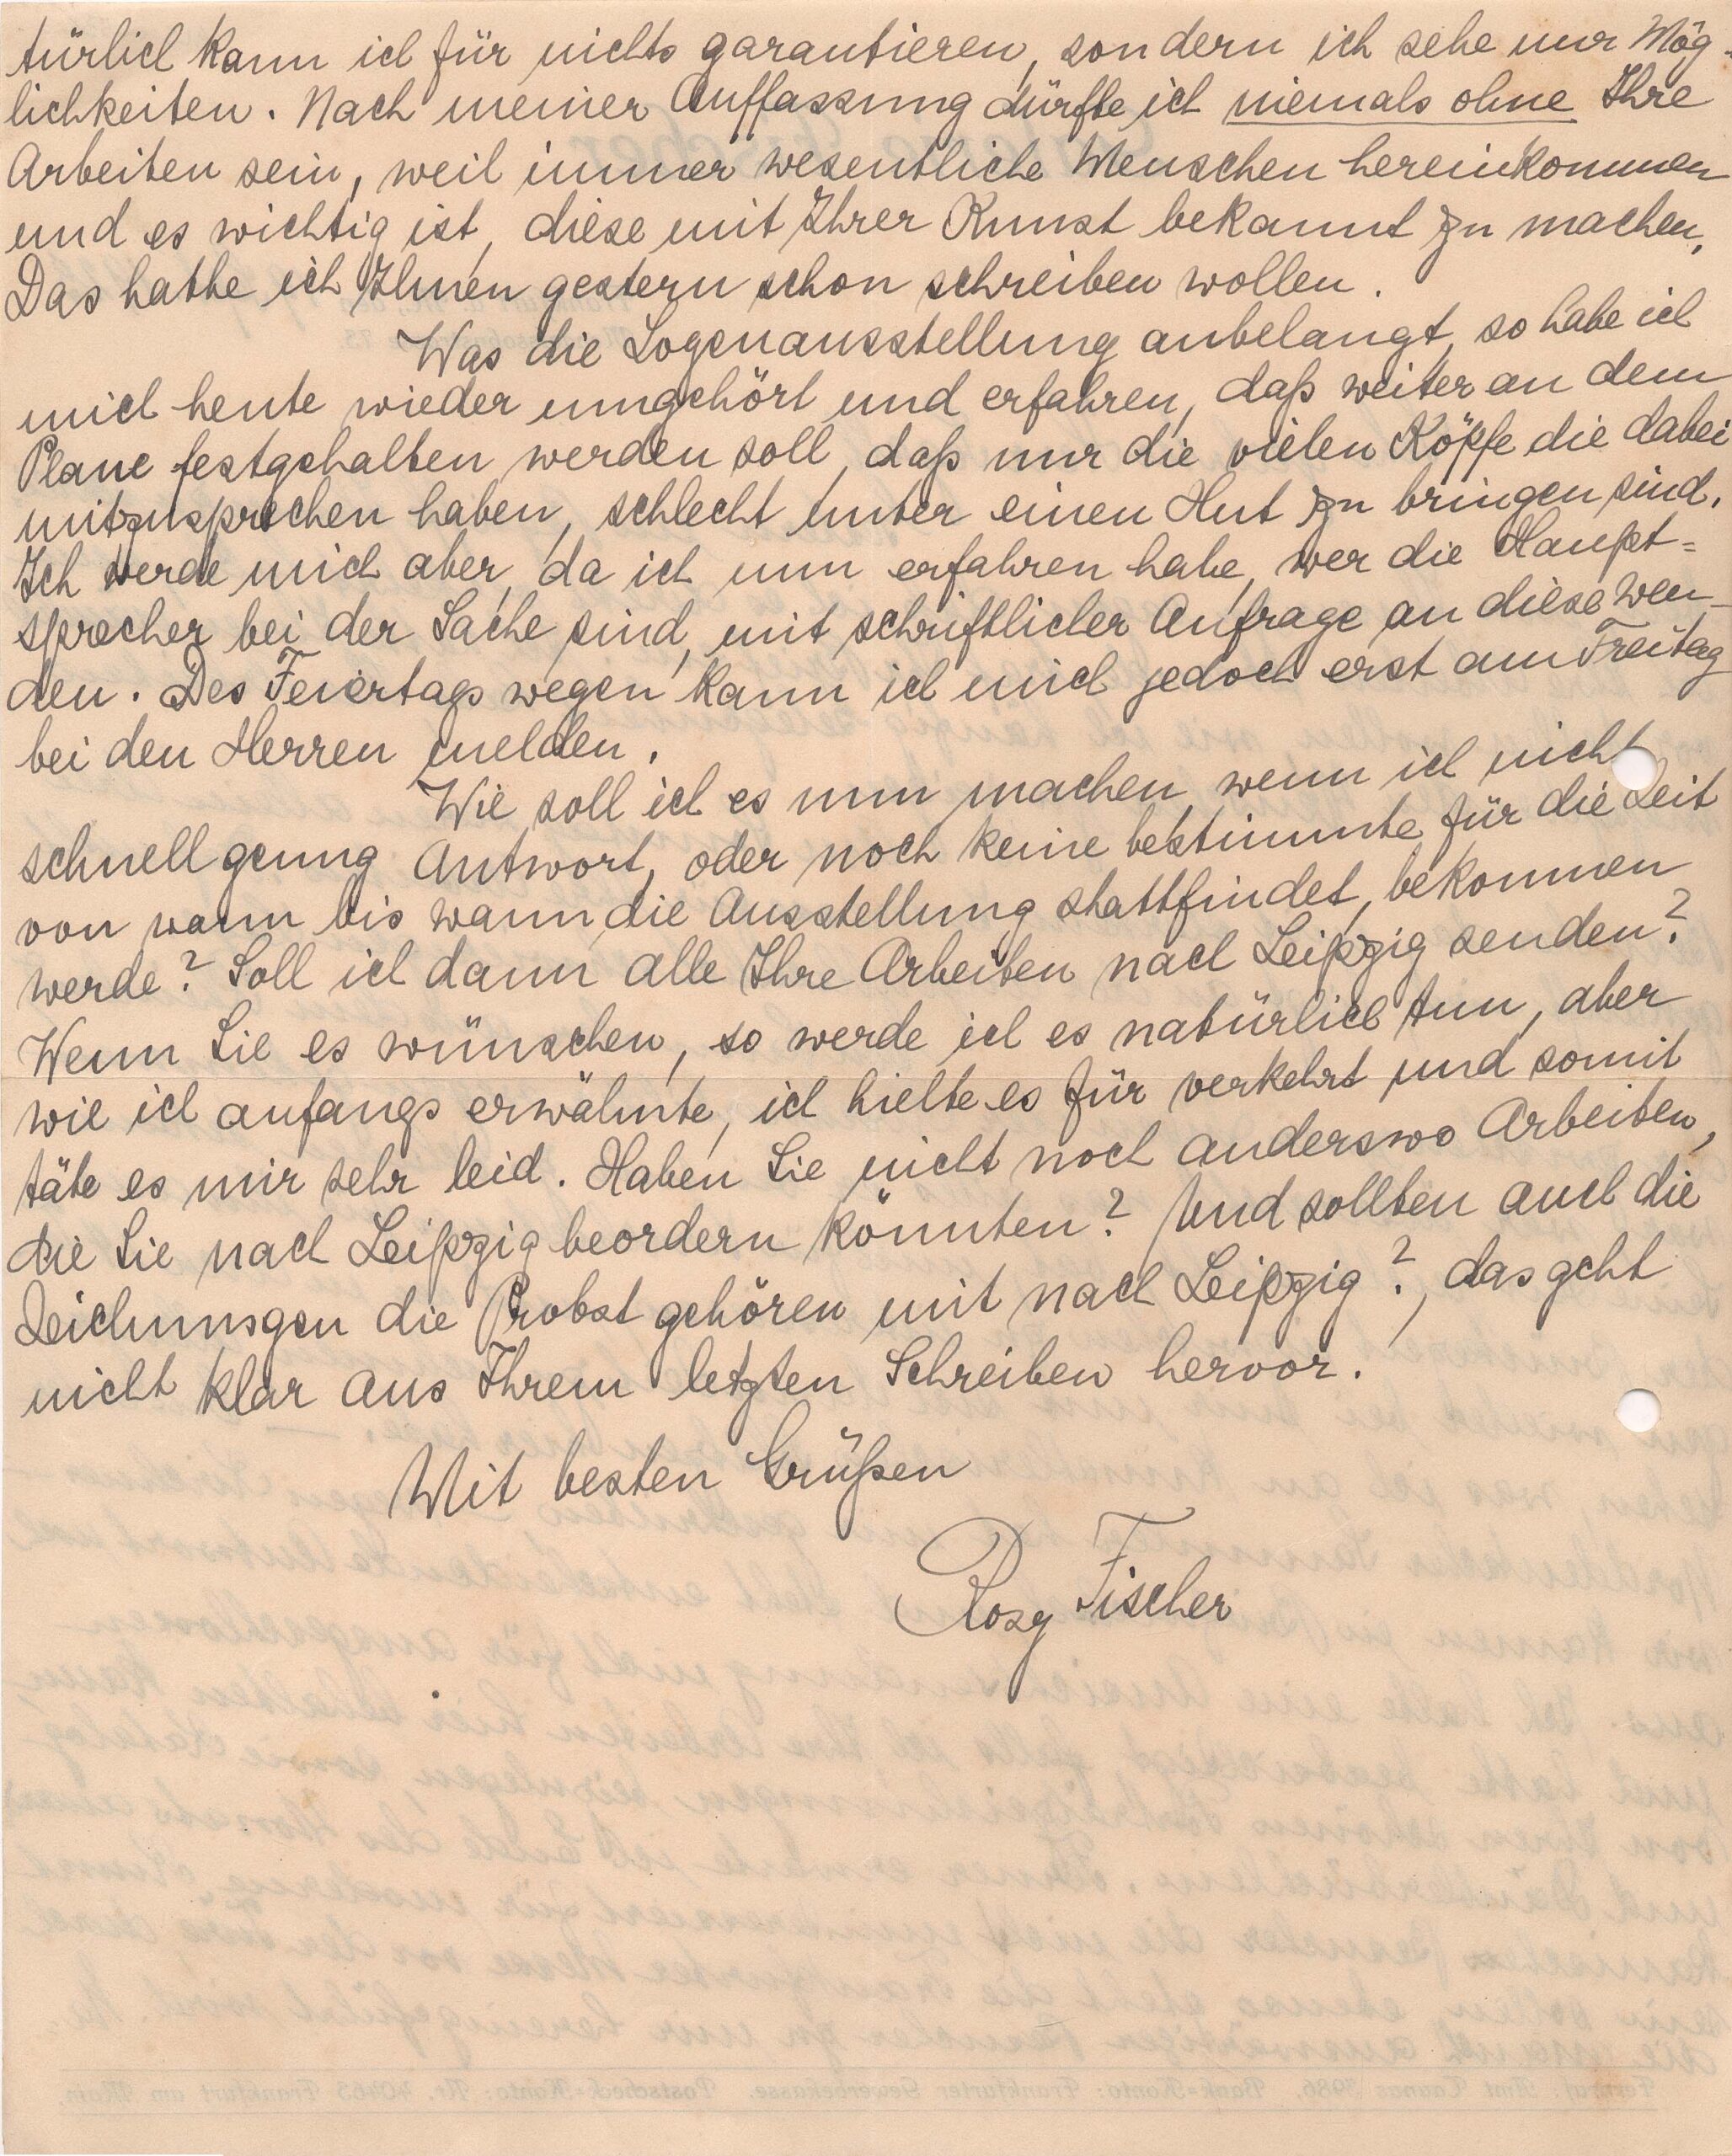 türlich kann ich für nichts garantieren, sondern ich sehe nur Mög-
lichkeiten. Nach meiner Auffassung dürfte ich niemals ohne Ihre
Arbeiten sein, weil immer wesentliche Menschen hereinkommen
und es wichtig ist, diese mit Ihrer Kunst bekannt zu machen.
Das hatte ich Ihnen gestern schon schreiben wollen.
Was die Logenausstellung anbelangt, so habe ich
mich heute wieder umgehört und erfahren, daß weiter an dem
Plane festgehalten werden soll, daß nur die vielen Köpfe die dabei
mitzusprechen haben, schlecht unter einen Hut zu bringen sind.
Ich werde mich aber, da ich nun erfahren habe, wer die Haupt=
sprecher bei der Sache sind, mit schriftlicher Anfrage an diese wen-
den. Des Feiertags wegen kann ich mich jedoch erst am Freitag
bei den Herren melden.
Wie soll ich es nun machen, wenn ich nicht
schnell genug Antwort, oder noch keine bestimmte für die Zeit
von wann bis wann die Ausstellung stattfindet, bekommen
werde? Soll ich dann alle Ihre Arbeiten nach Leipzig senden?
Wenn Sie es wünschen, so werde ich es natürlich tun, aber
wie ich anfangs erwähnte, ich hielte es für verkehrt und somit
täte es mir sehr leid. Haben Sie nicht noch anderswo Arbeiten,
die Sie nach Leipzig beordern könnten? Und sollten auch die
Zeichnungen die Probst gehören mit nach Leipzig?, das geht
nicht klar aus Ihrem letzten Schreiben hervor.
Mit besten Grüßen
Rosy Fischer